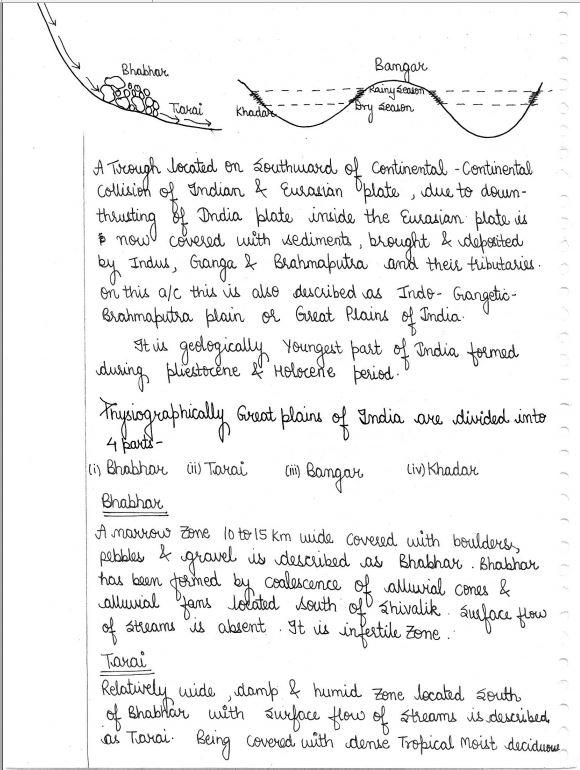 Bhabhar
Tarai
Bangar
Rainy Season
Khadar
Dry Season
A Trough located on Southward of Continental - Continental
Collision of Indian & Eurasian plate, due to down-
thrusting of India plate inside the Eurasian plate is
now covered with sediments, brought & deposited
by Indus, Ganga & Brahmaputra and their tributaries.
On this a/c this is also described as Indo- Gangetic-
Brahmaputra plain or Great Plains of India.
It is geologically Youngest part of India formed
during pliestocene & Holocene period.
Physiographically Great plains of India are divided into
4 parts-
(i) Bhabhar (ii) Tarai (iii) Bangar (iv) Khadar
Bhabhar
A narrow Zone 10 to 15 Km wide covered with boulders,
pebbles & gravel is described as Bhabhar. Bhabhar
has been formed by coalescence of alluvial cones &
alluvial fans located South of Shivalik. Surface flow
of Streams is absent. It is infertile Zone.
Tarai
Relatively wide, damp & humid Zone located South
of Bhabhar with surface flow of Streams is described
as Tarai. Being covered with dense Tropical Moist deciduous